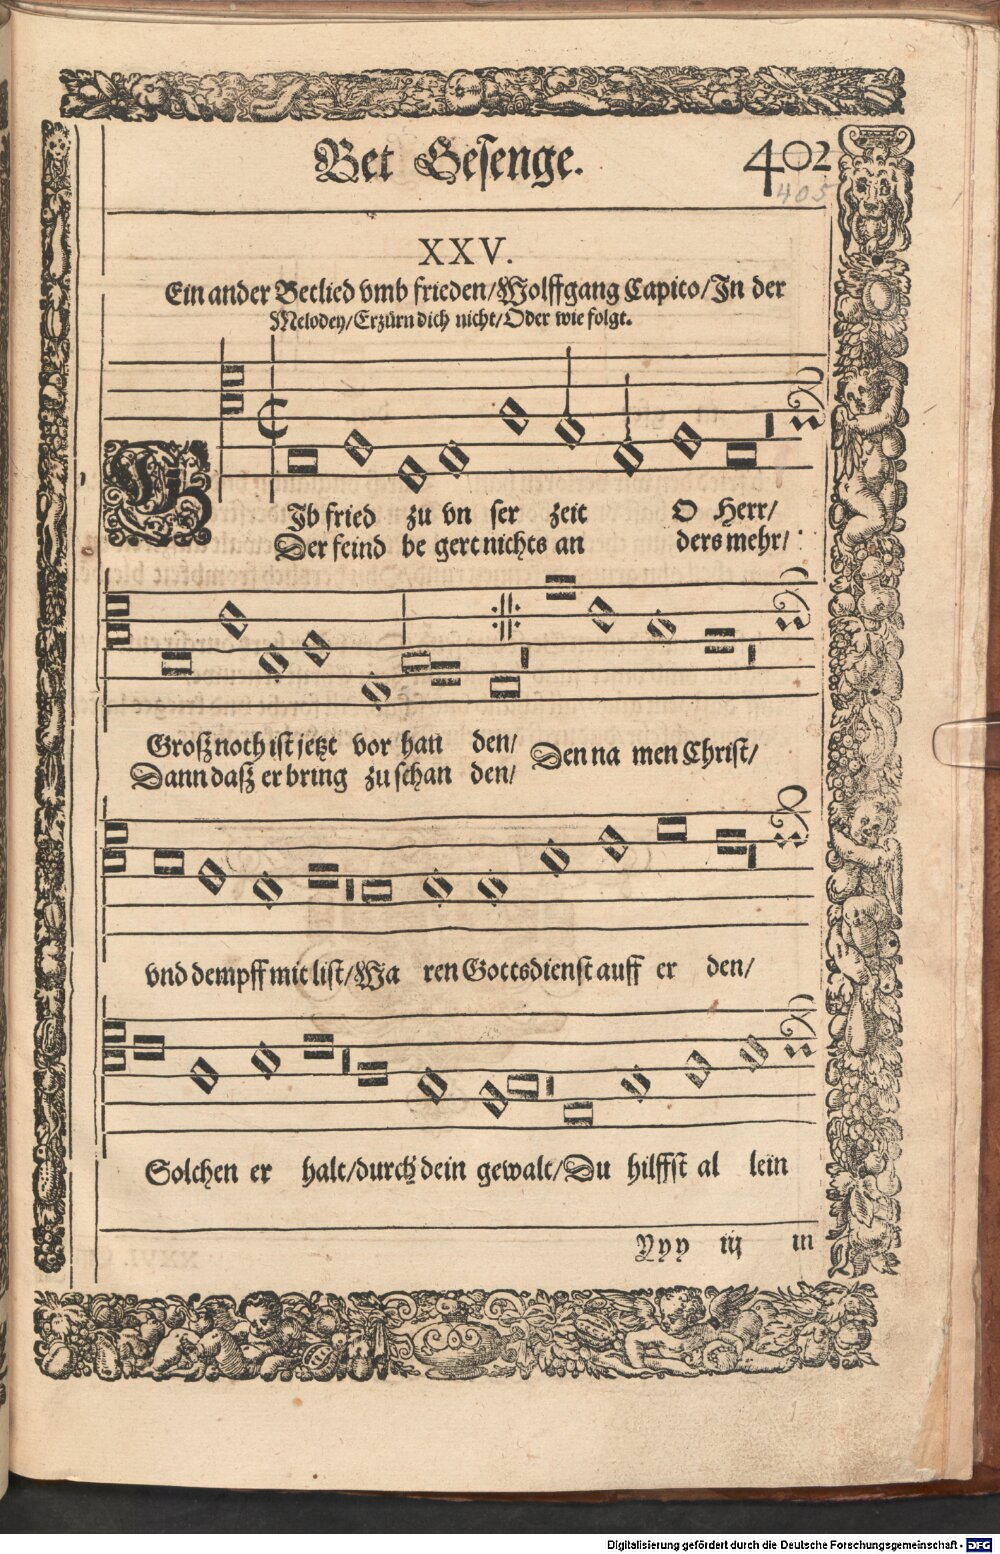 Bet Gesenge. 402
405
XXV.
Ein ander Betlied vmb frieden/Wolffgang Capito/In der
Melodey/Erzürn dich nicht/Oder wie folgt.
GIb fried zu vn ser zeit O Herr/
Der feind be gert nichts an ders mehr/
Groß noth ist jetzt vor han den/ Den na men Christ/
Dann daß er bring zu schan den/
vnd dempff mit list/Wa ren Gottsdienst auff er den/
Solchen er halt/durch dein gewalt/Du hilffst al lein
Yyy iij in
Digitalisierung gefördert durch die Deutsche Forschungsgemeinschaft - DFG